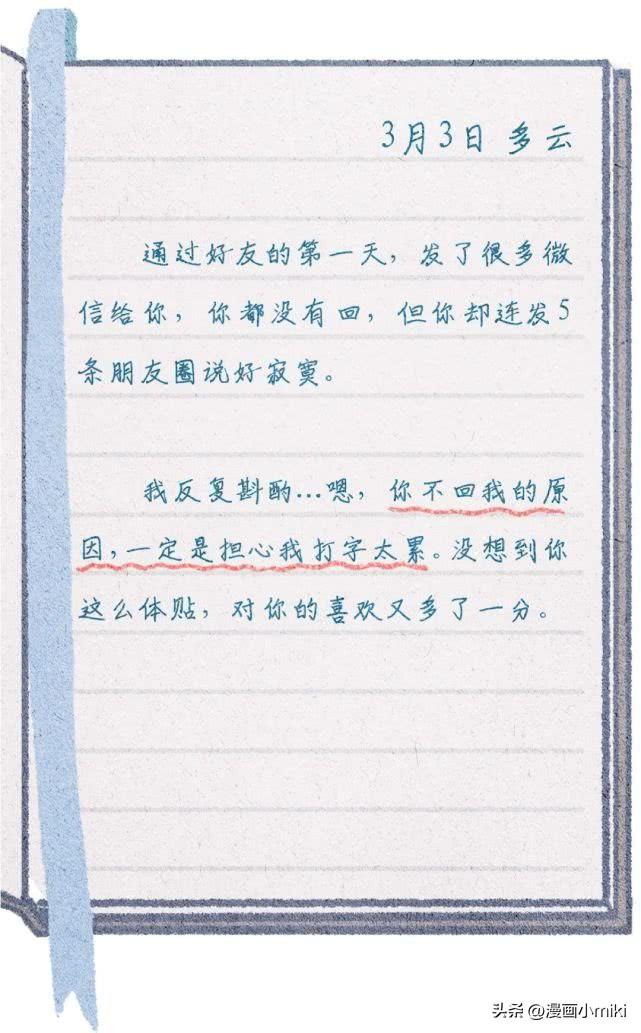 3月3日 多云
通过好友的第一天，发了很多微
信给你，你都没有回，但你却连发5
条朋友圈说好寂寞。
我反复斟酌...嗯，你不回我的原
因，一定是担心我打字太累。没想到你
这么体贴，对你的喜欢又多了一分。
头条 @漫画小miki